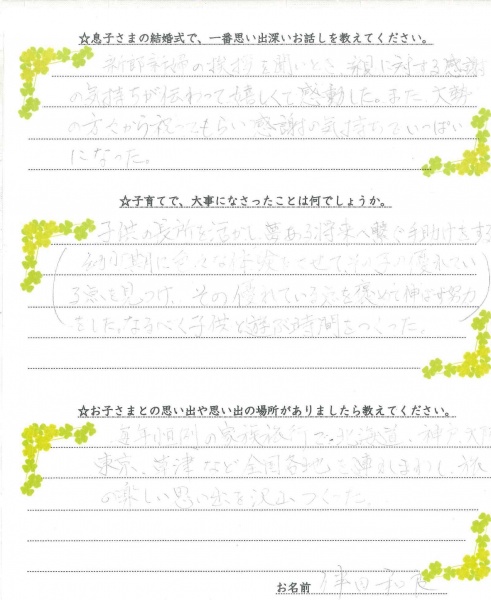 ☆息子さまの結婚式で、一番思い出深いお話しを教えてください。
新郎新婦の挨拶を聞いたとき、親に対する感謝
の気持ちが伝わって嬉しくて感動した。また、大勢
の方々から祝ってもらい感謝の気持ちでいっぱい
になった。
☆子育てで、大事になさったことは何でしょうか。
子供の長所を活かし 将来へ繋ぐ手助けをする
幼少期に 体験をさせて、 優れてい
る点を見つけ、その優れている点を褒めて伸ばす努力
をした。なるべく子供と遊ぶ時間をつくった。
☆お子さまとの思い出や思い出の場所がありましたら教えてください。
毎年恒例の家族旅行で、北海道、神戸、大阪
東京、 など全国各地を連れまわし、旅
の楽しい思い出を沢山つくった。
お名前 津田